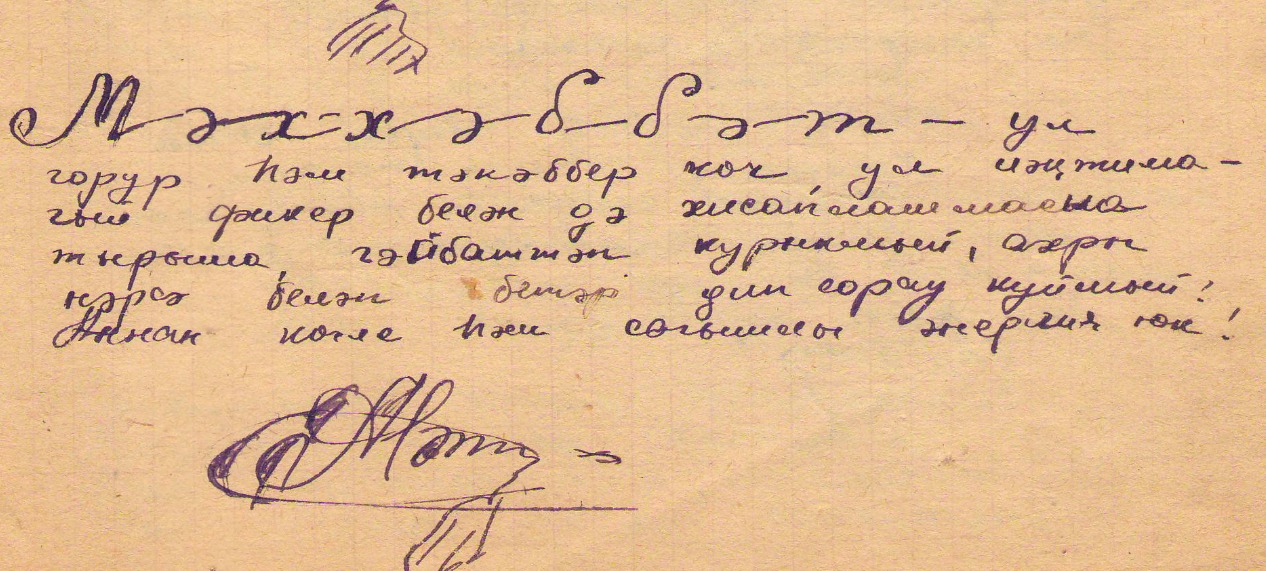 М-ә-х-х-ә-б-б-ә-т - ул
горур һәм тәкәббер көч ул иҗтима-
гый фикер белән дә хисаплашмаска
тырыша, гәйбәттән курыкмый, ахры
нәрсә белән бетәр дип сорау куймый!
Аннан көчле һәм согышлы энергия юк!